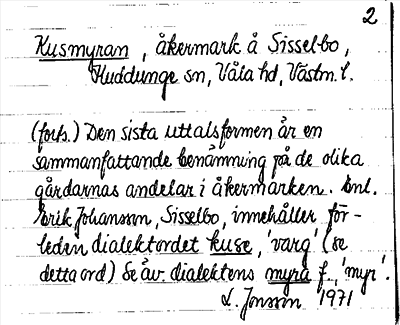 2
Kusmyran, åkermark å Sisselbo,
Huddunge sn, Våla hd, Västm. l.
(forts.) Den sista uttalsformen är en
sammanfattande benämning på de olika
gårdarnas andelar i åkermarken. Enl.
Erik Johansson, Sisselbo, innehåller för-
leden dialektordet kuse, 'varg' (se
detta ord) Se äv. dialektens myra f., 'myr'.
L. Jonsson 1971